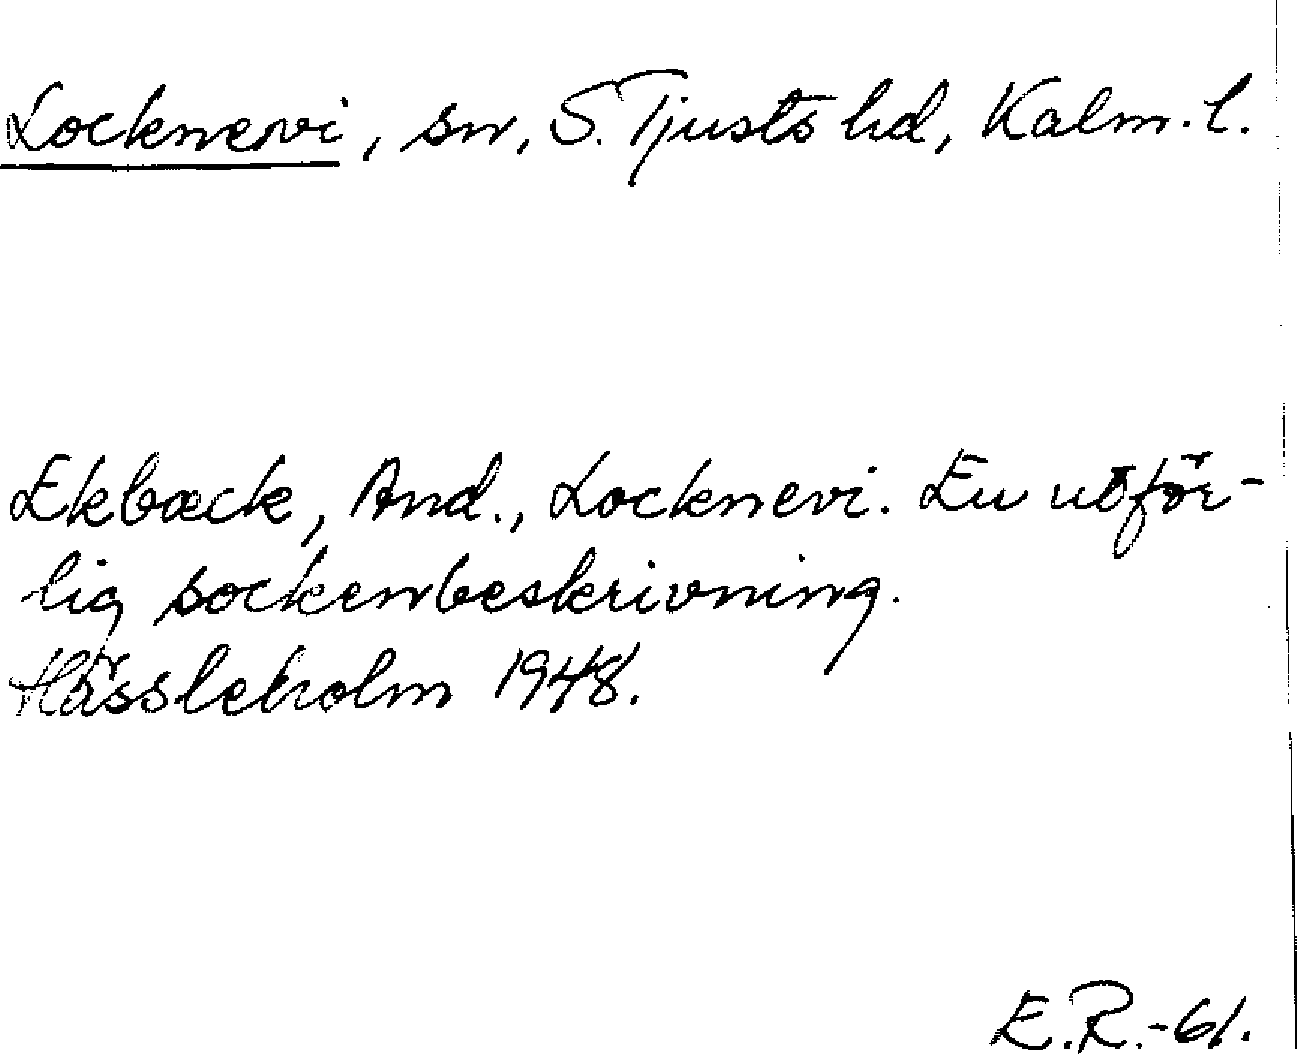 Locknevi, sn, S. Tjusts hd, Kalm. l.
Ekbæck, And., Locknevi. En utför-
lig sockenbeskrivning.
Hässleholm 1948.
E.R.-61.